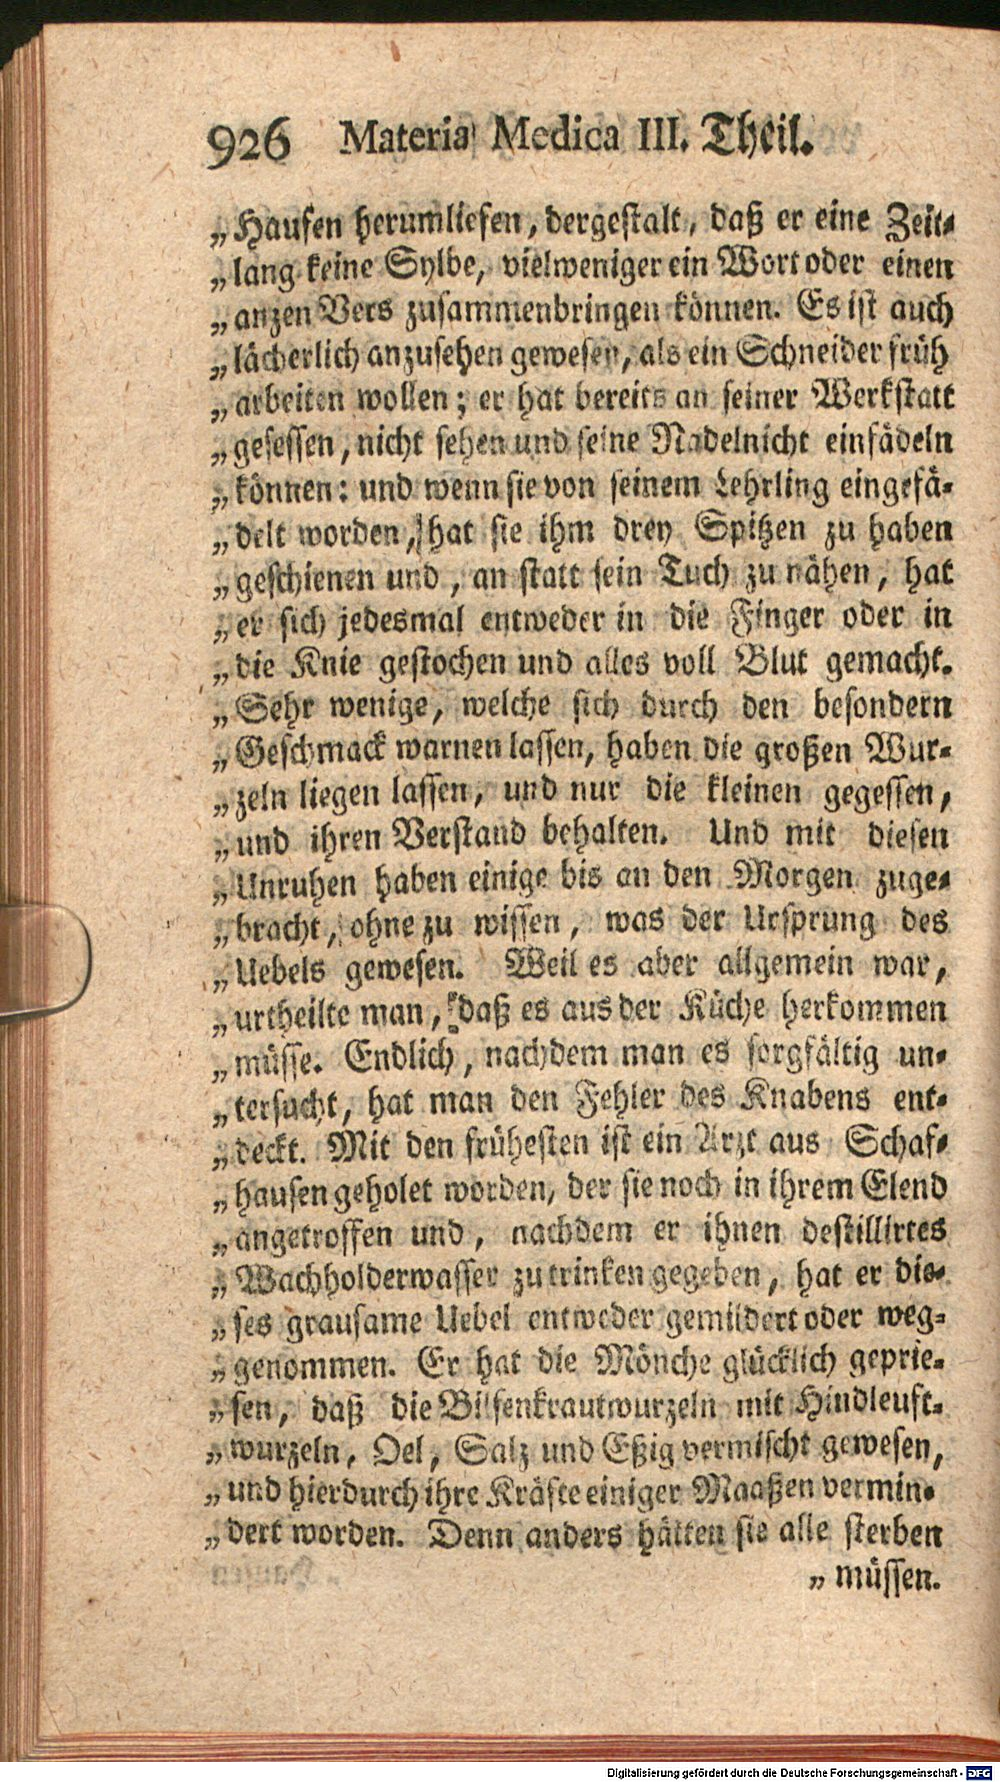 926 Materia Medica III. Theil.
„Haufen herumliefen, dergestalt, daß er eine Zeit-
„lang keine Sylbe, vielweniger ein Wort oder einen
„anzen Vers zusammenbringen können. Es ist auch
„lächerlich anzusehen gewesen, als ein Schneider früh
„arbeiten wollen; er hat bereits an seiner Werkstatt
„gesessen, nicht sehen und seine Nadelnicht einfädeln
„können: und wenn sie von seinem Lehrling eingefä-
„delt worden, hat sie ihm drey Spitzen zu haben
„geschienen und, an statt sein Tuch zu nähen, hat
„er sich jedesmal entweder in die Finger oder in
„die Knie gestochen und alles voll Blut gemacht.
„Sehr wenige, welche sich durch den besondern
„Geschmack warnen lassen, haben die großen Wur-
„zeln liegen lassen, und nur die kleinen gegessen,
„und ihren Verstand behalten. Und mit diesen
„Unruhen haben einige bis an den Morgen zuge-
„bracht, ohne zu wissen, was der Ursprung des
„Uebels gewesen. Weil es aber allgemein war,
„urtheilte man, daß es aus der Küche herkommen
„müsse. Endlich, nachdem man es sorgfältig un-
„tersucht, hat man den Fehler des Knabens ent-
„deckt. Mit den frühesten ist ein Arzt aus Schaf-
„hausen geholet worden, der sie noch in ihrem Elend
„angetroffen und, nachdem er ihnen destillirtes
„Wachholderwasser zu trinken gegeben, hat er die-
„ses grausame Uebel entweder gemildert oder weg-
„genommen. Er hat die Mönche glücklich geprie-
„sen, daß die Bilsenkrautwurzeln mit Hindleuft-
„wurzeln, Oel, Salz und Eßig vermischt gewesen,
„und hierdurch ihre Kräfte einiger Maaßen vermin-
„dert worden. Denn anders hätten sie alle sterben
„müssen.
Digitalisierung gefördert durch die Deutsche Forschungsgemeinschaft - DFG